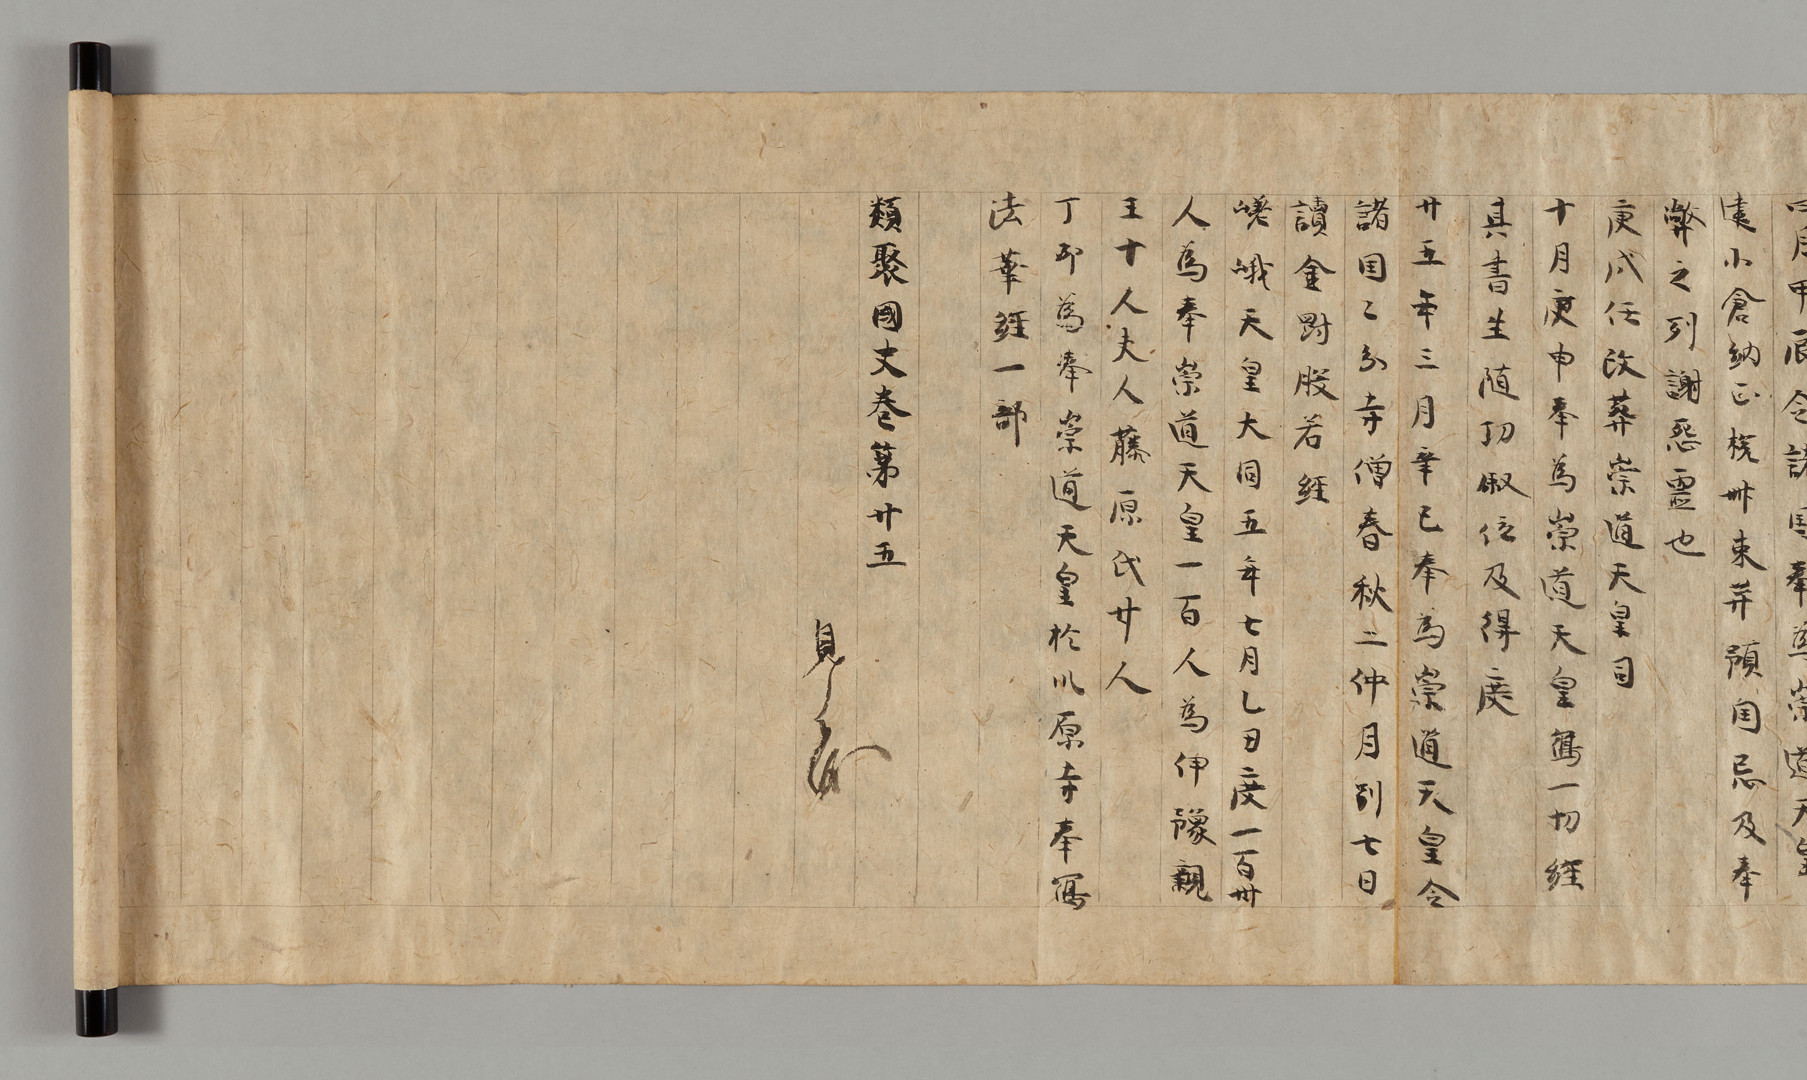 四月甲辰令諸国奉為崇道天皇
遠小倉納正税卌束并預国忌及奉
弊之列謝怨霊也
庚戌任改葬崇道天皇司
十月庚申奉為崇道天皇寫一切経
其書生随功叙位及得度
廿五年三月辛巳奉為崇道天皇令
諸国〻分寺僧春秋二仲月別七日
讀金剛般若経
嵯峨天皇大同五年七月乙丑度一百卌
人為奉崇道天皇一百人為伊豫親
王十人夫人藤原氏廿人
丁卯為奉崇道天皇於川原寺奉寫
法華経一部
類聚國史巻第廿五
見了